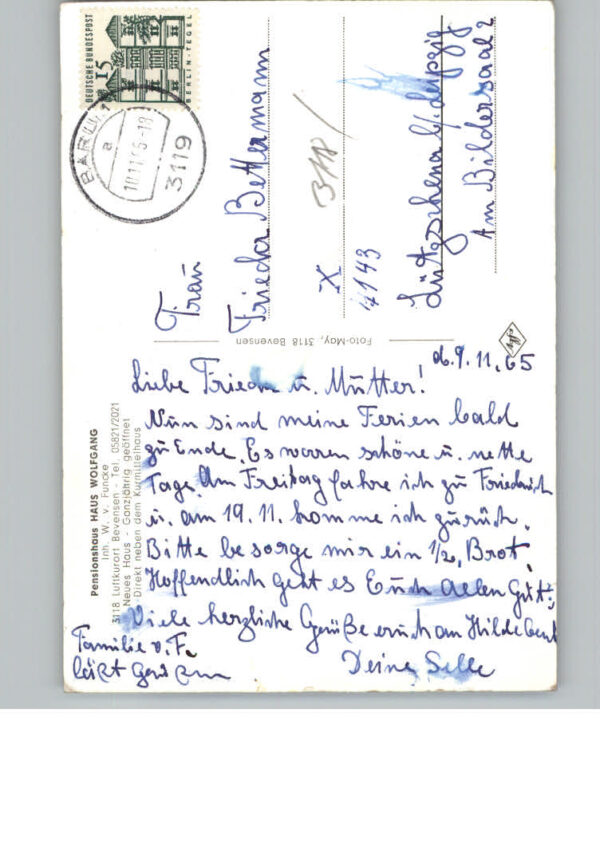 DEUTSCHE BUNDESPOST
15
BERLIN-TEGEL
a
3119
Frau
Frieda Bettermann
3118
X
4143
Lützschena b/Leipzig
Am Bildersaal 2
Foto-May, 3118 Bevensen
d. 9.11.65
Liebe Frieda u. Mutter!
Nun sind meine Ferien bald
zu Ende. Es waren schöne u. nette
Tage. Am Freitag fahre ich zu Friedrich
u. am 19.11. komme ich zurück.
Bitte besorge mir ein 1/2 Brot.
Hoffendlich geht es Euch Allen Gut.
Viele herzliche Grüße auch an Hilde
Deine
Familie v. F.
läßt
Pensionshaus HAUS WOLFGANG
Inh. W. v. Funcke
3118 Luftkurort Bevensen - Tel. 05821/2021
Neues Haus - Ganzjährig geöffnet
Direkt neben dem Kurmittelhaus